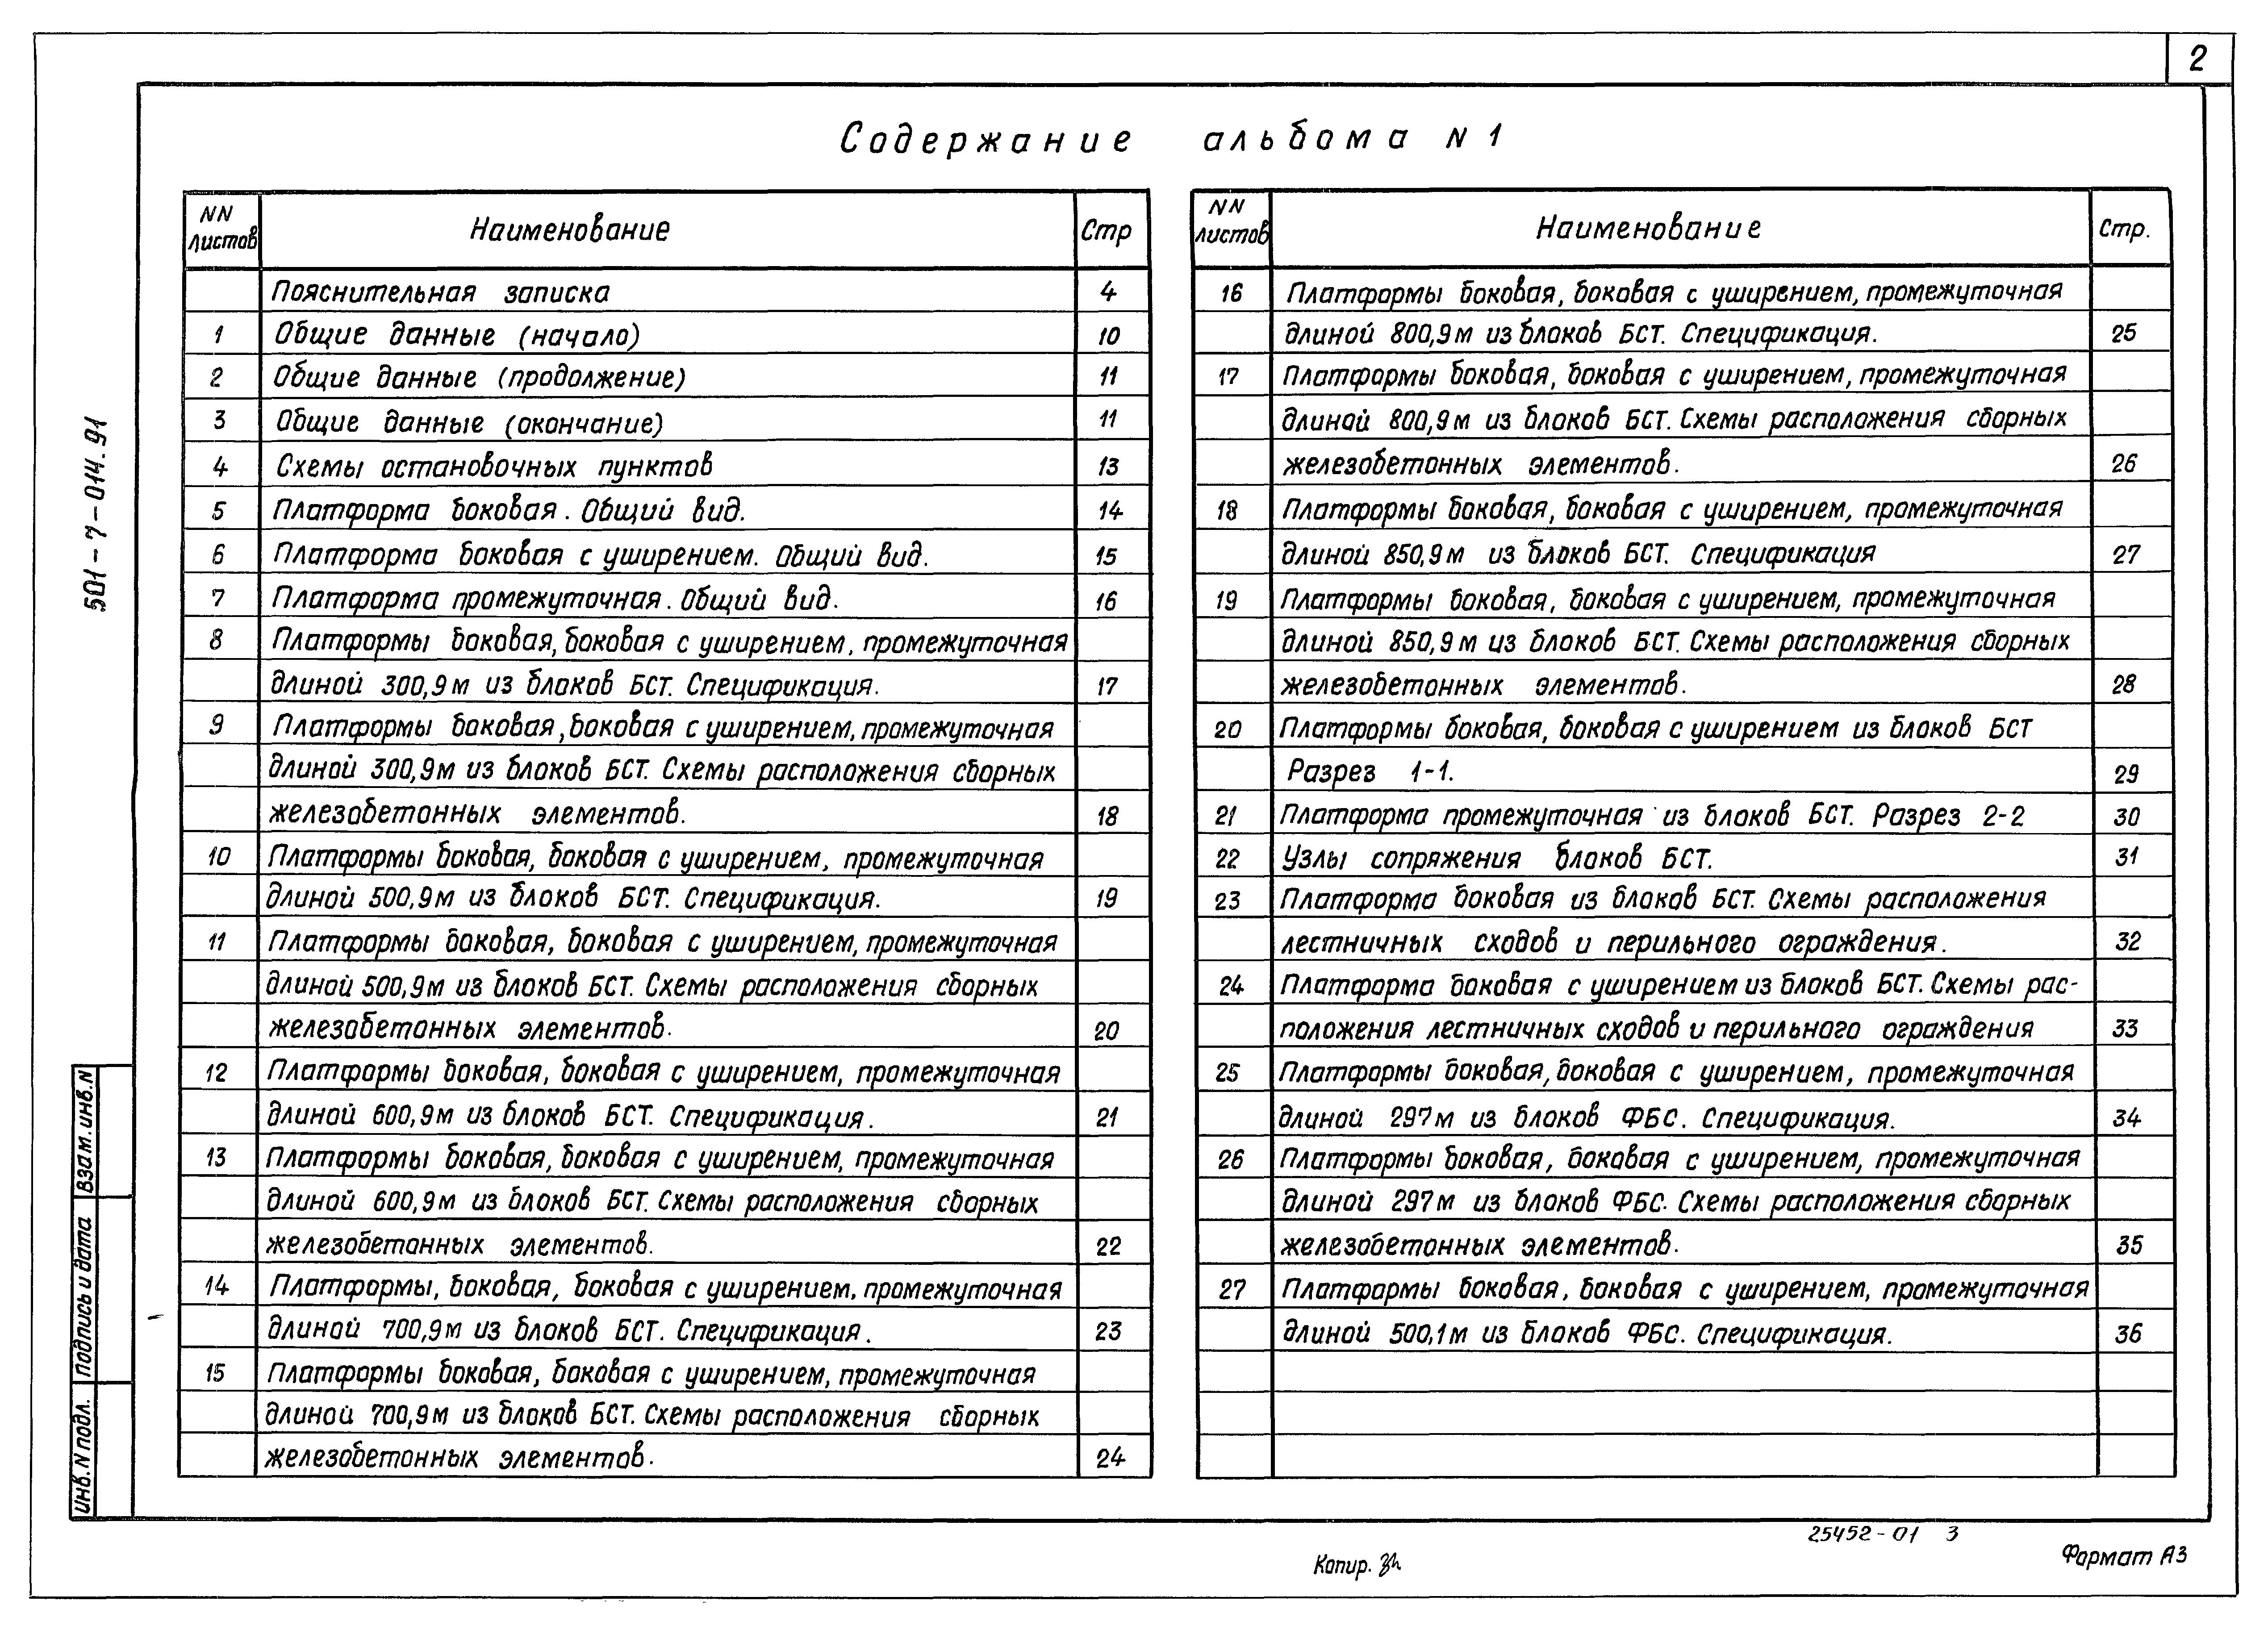 2
Содержание альбома N 1
NN листов Наименование Стр
Пояснительная записка 4
1 Общие данные (начало) 10
2 Общие данные (продолжение) 11
3 Общие данные (окончание) 11
4 Схемы остановочных пунктов 13
5 Платформа боковая. Общий вид. 14
6 Платформа боковая с уширением. Общий вид. 15
7 Платформа промежуточная. Общий вид. 16
8 Платформы боковая, боковая с уширением, промежуточная
длиной 300,9м из блоков БСТ. Спецификация. 17
9 Платформы боковая, боковая с уширением, промежуточная
длиной 300,9м из блоков БСТ. Схемы расположения сборных
железобетонных элементов. 18
10 Платформы боковая, боковая с уширением, промежуточная
длиной 500,9м из блоков БСТ. Спецификация. 19
11 Платформы боковая, боковая с уширением, промежуточная
длиной 500,9м из блоков БСТ. Схемы расположения сборных
железобетонных элементов. 20
12 Платформы боковая, боковая с уширением, промежуточная
длиной 600,9м из блоков БСТ. Спецификация. 21
13 Платформы боковая, боковая с уширением, промежуточная
длиной 600,9м из блоков БСТ. Схемы расположения сборных
железобетонных элементов. 22
14 Платформы, боковая, боковая с уширением, промежуточная
длиной 700,9м из блоков БСТ. Спецификация. 23
15 Платформы боковая, боковая с уширением, промежуточная
длиной 700,9м из блоков БСТ. Схемы расположения сборных
железобетонных элементов. 24
NN листов Наименование Стр.
16 Платформы боковая, боковая с уширением, промежуточная
длиной 800,9м из блоков БСТ. Спецификация. 25
17 Платформы боковая, боковая с уширением, промежуточная
длиной 800,9м из блоков БСТ. Схемы расположения сборных
железобетонных элементов. 26
18 Платформы боковая, боковая с уширением, промежуточная
длиной 850,9м из блоков БСТ. Спецификация 27
19 Платформы боковая, боковая с уширением, промежуточная
длиной 850,9м из блоков БСТ. Схемы расположения сборных
железобетонных элементов. 28
20 Платформы боковая, боковая с уширением из блоков БСТ
Разрез 1-1. 29
21 Платформа промежуточная из блоков БСТ. Разрез 2-2 30
22 Узлы сопряжения блоков БСТ. 31
23 Платформа боковая из блоков БСТ. Схемы расположения
лестничных сходов и перильного ограждения. 32
24 Платформа боковая с уширением из блоков БСТ. Схемы рас-
положения лестничных сходов и перильного ограждения 33
25 Платформы боковая, боковая с уширением, промежуточная
длиной 297м из блоков ФБС. Спецификация. 34
26 Платформы боковая, боковая с уширением, промежуточная
длиной 297м из блоков ФБС. Схемы расположения сборных
железобетонных элементов. 35
27 Платформы боковая, боковая с уширением, промежуточная
длиной 500,1м из блоков ФБС. Спецификация. 36
501-7-014.91
Взам. инв. N
Подпись и дата
Инв. N подл.
25452-01 3
Копир.
Формат А3